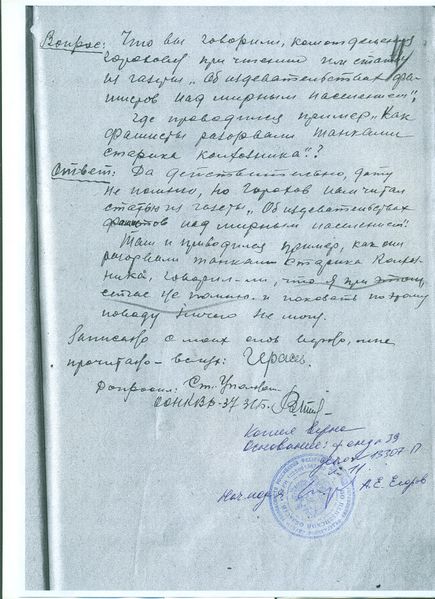 Вопрос: Что вы говорили, комотделения
Горохову при чтении им статьи
из газеты „Об издевательствах фа-
шистов над мирным населением",
где проводился пример „Как
фашисты разорвали танками
старика колхозника"?
Ответ: Да действительно, дату
не помню, но Горохов нам читал
статью из газеты „Об издевательствах
фашистов над мирным населением".
Там и приводился пример, как они
разорвали танками старика колхоз-
ника, говорил-ли, что я при этом,
сейчас не помню и показать по этому
поводу ничего не могу.
Записано с моих слов верно, мне
прочитано –
Допросил: Ст. Уполном.
ООНКВД-37
Копия верна
Основание: фонд
13307 П
А.Е. Егоров